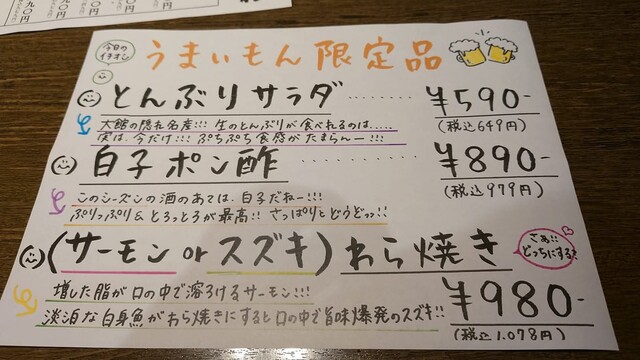 今日のイチオシ
うまいもん限定品
とんぶりサラダ ........ ¥590-
(税込649円)
大館の隠れ名産!!! 生のとんぶりが食べれるのは......
実は、今だけ!!! ぷちぷち食感がたまらんー!!!
白子ポン酢 ........ ¥890-
(税込979円)
このシーズンの酒のあては、白子だねー!!!
ぷりっぷり&とろっとろが最高!! さっぱりとどうどっっ!!
(サーモン or スズキ) わら焼き
さぁ!! どっちにする?
¥980-
(税込1,078円)
増した脂が口の中で溶ろけるサーモン!!!
淡泊な白身魚がわら焼きにすると口の中で旨味爆発のスズキ!!